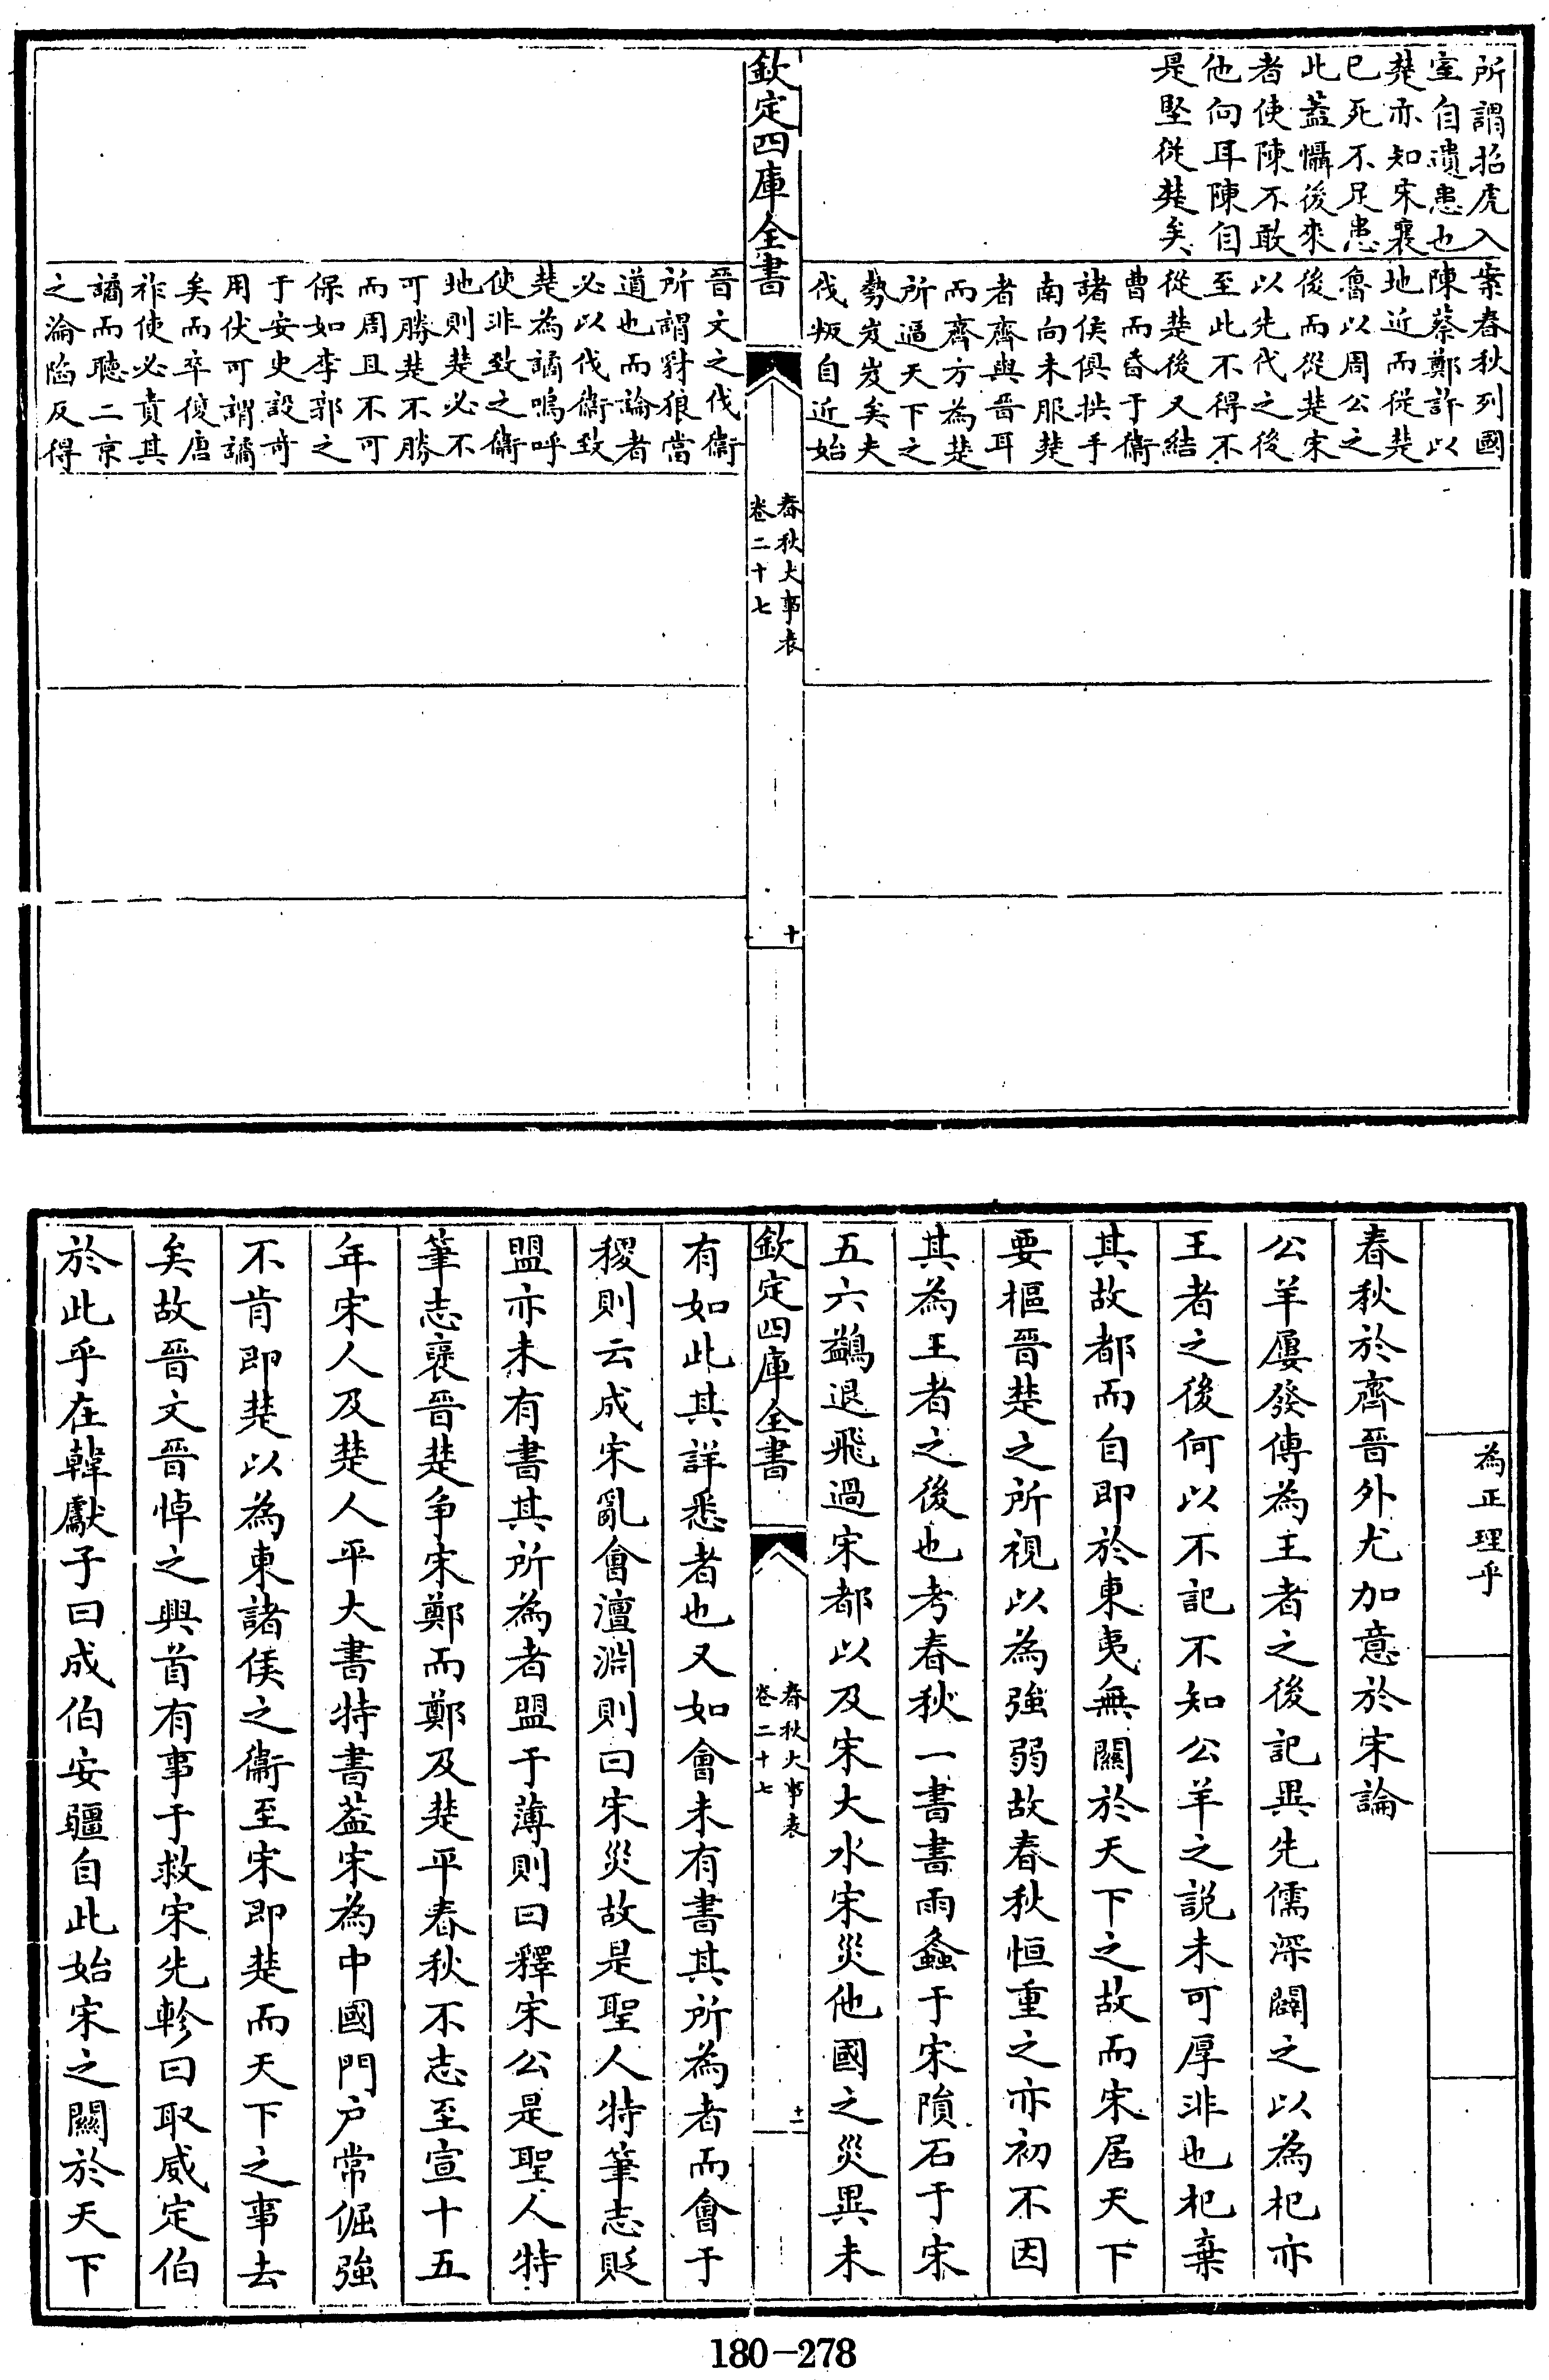 所謂招虎入
室自遺患也
楚亦知宋襄
已死不足患
此蓋懾後來
者使陳不敢
他向耳陳自
是堅從楚矣
案春秋列國
陳蔡鄭許以
地近而從楚
魯以周公之
後而從楚宋
以先代之後
至此不得不
從楚後又結
曹而昏于衛
諸侯俱拱手
南向未服楚
者齊與晉耳
而齊方為楚
所逼天下之
勢岌岌矣夫
伐叛自近始
欽定四庫全書
春秋大事表
卷二十七
十
晉文之伐衛
所謂豺狼當
道也而論者
必以伐衛致
楚為譎嗚呼
使非致之衛
地則楚必不
可勝楚不勝
而周且不可
保如李郭之
于安史設奇
用伏可謂譎
矣而卒復唐
祚使必責其
譎而聽二京
之淪陷反得
為正理乎
春秋於齊晉外尤加意於宋論
公羊屢發傳為王者之後記異先儒深闢之以為杞亦
王者之後何以不記不知公羊之說未可厚非也杞棄
其故都而自即於東夷無關於天下之故而宋居天下
要樞晉楚之所視以為強弱故春秋恒重之亦初不因
其為王者之後也考春秋一書書雨螽于宋隕石于宋
五六鷁退飛過宋都以及宋大水宋災他國之災異未
欽定四庫全書
春秋大事表
卷二十七
十一
有如此其詳悉者也又如會未有書其所為者而會于
稷則云成宋亂會澶淵則曰宋災故是聖人特筆志貶
盟亦未有書其所為者盟于薄則曰釋宋公是聖人特
筆志褒晉楚争宋鄭而鄭及楚平春秋不志至宣十五
年宋人及楚人平大書特書葢宋為中國門户常倔強
不肯即楚以為東諸侯之衛至宋即楚而天下之事去
矣故晉文晉悼之興首有事于救宋先軫曰取威定伯
於此乎在韓獻子曰成伯安疆自此始宋之關於天下
180-278